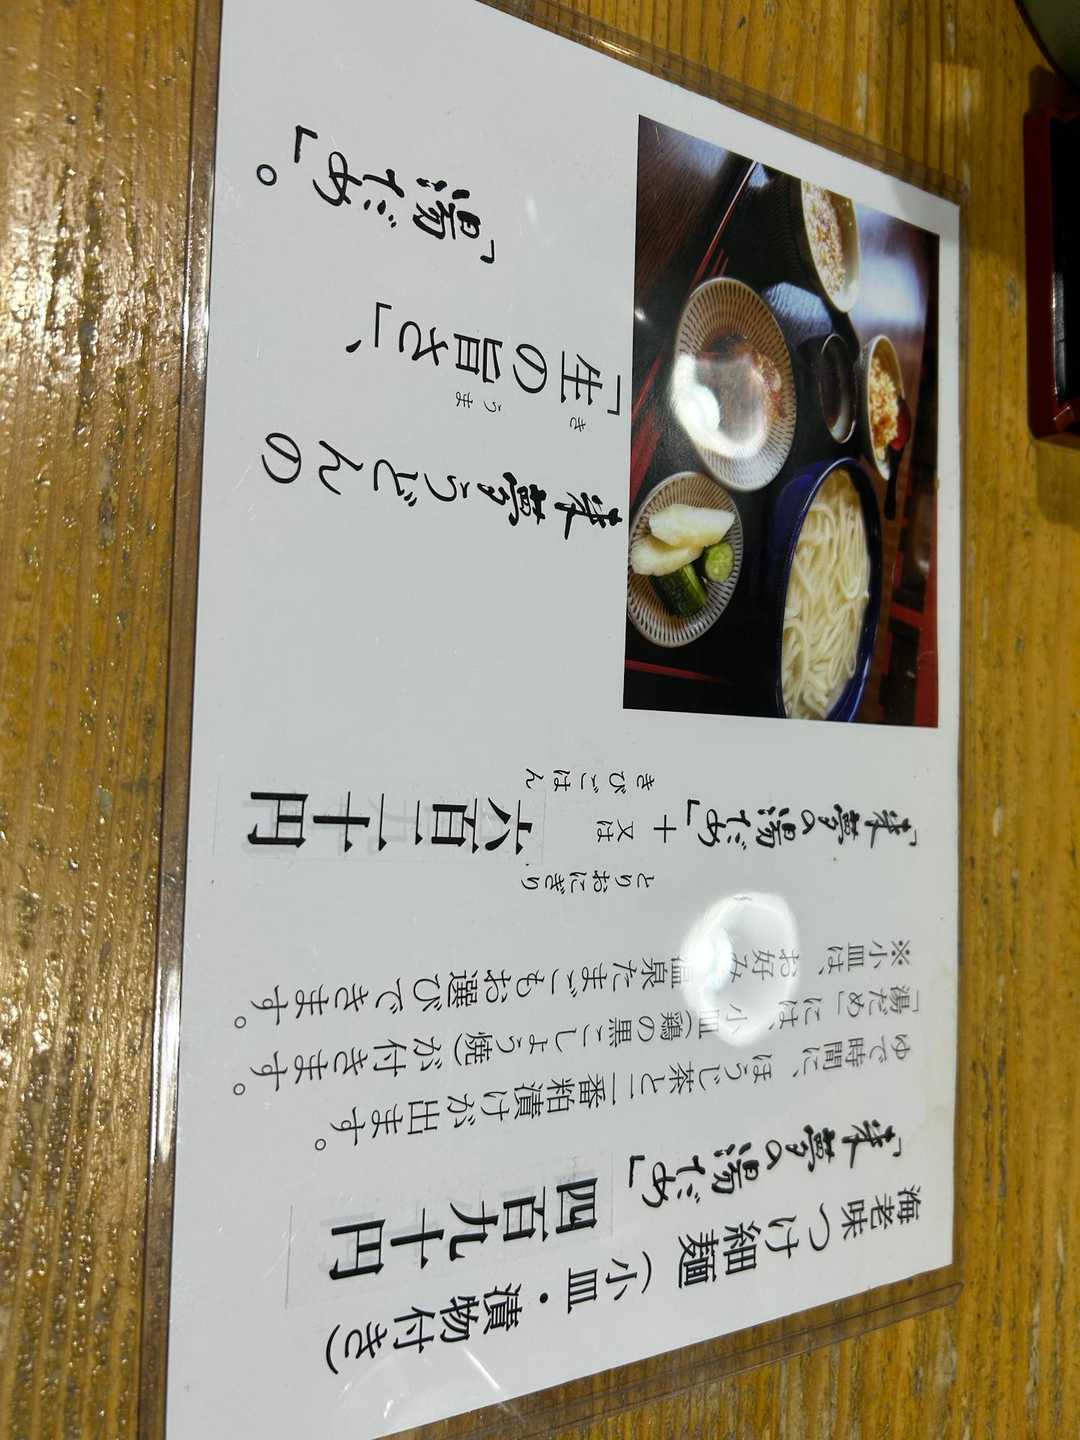 海老味つけ細麺(小皿・漬物付き)
「来夢の湯だめ」 四百九十円
ゆで時間に、ほうじ茶と二番粕漬けが出ます。
「湯だめ」には、小皿(鶏の黒こしょう焼)が付きます。
※小皿は、お好み 温泉たまごもお選びできます。
とりおにぎり
「来夢の湯だめ」+ 又は 六百二十円
きびごはん
来夢うどんの
「生の旨さ」、
き うま
「湯だめ」。